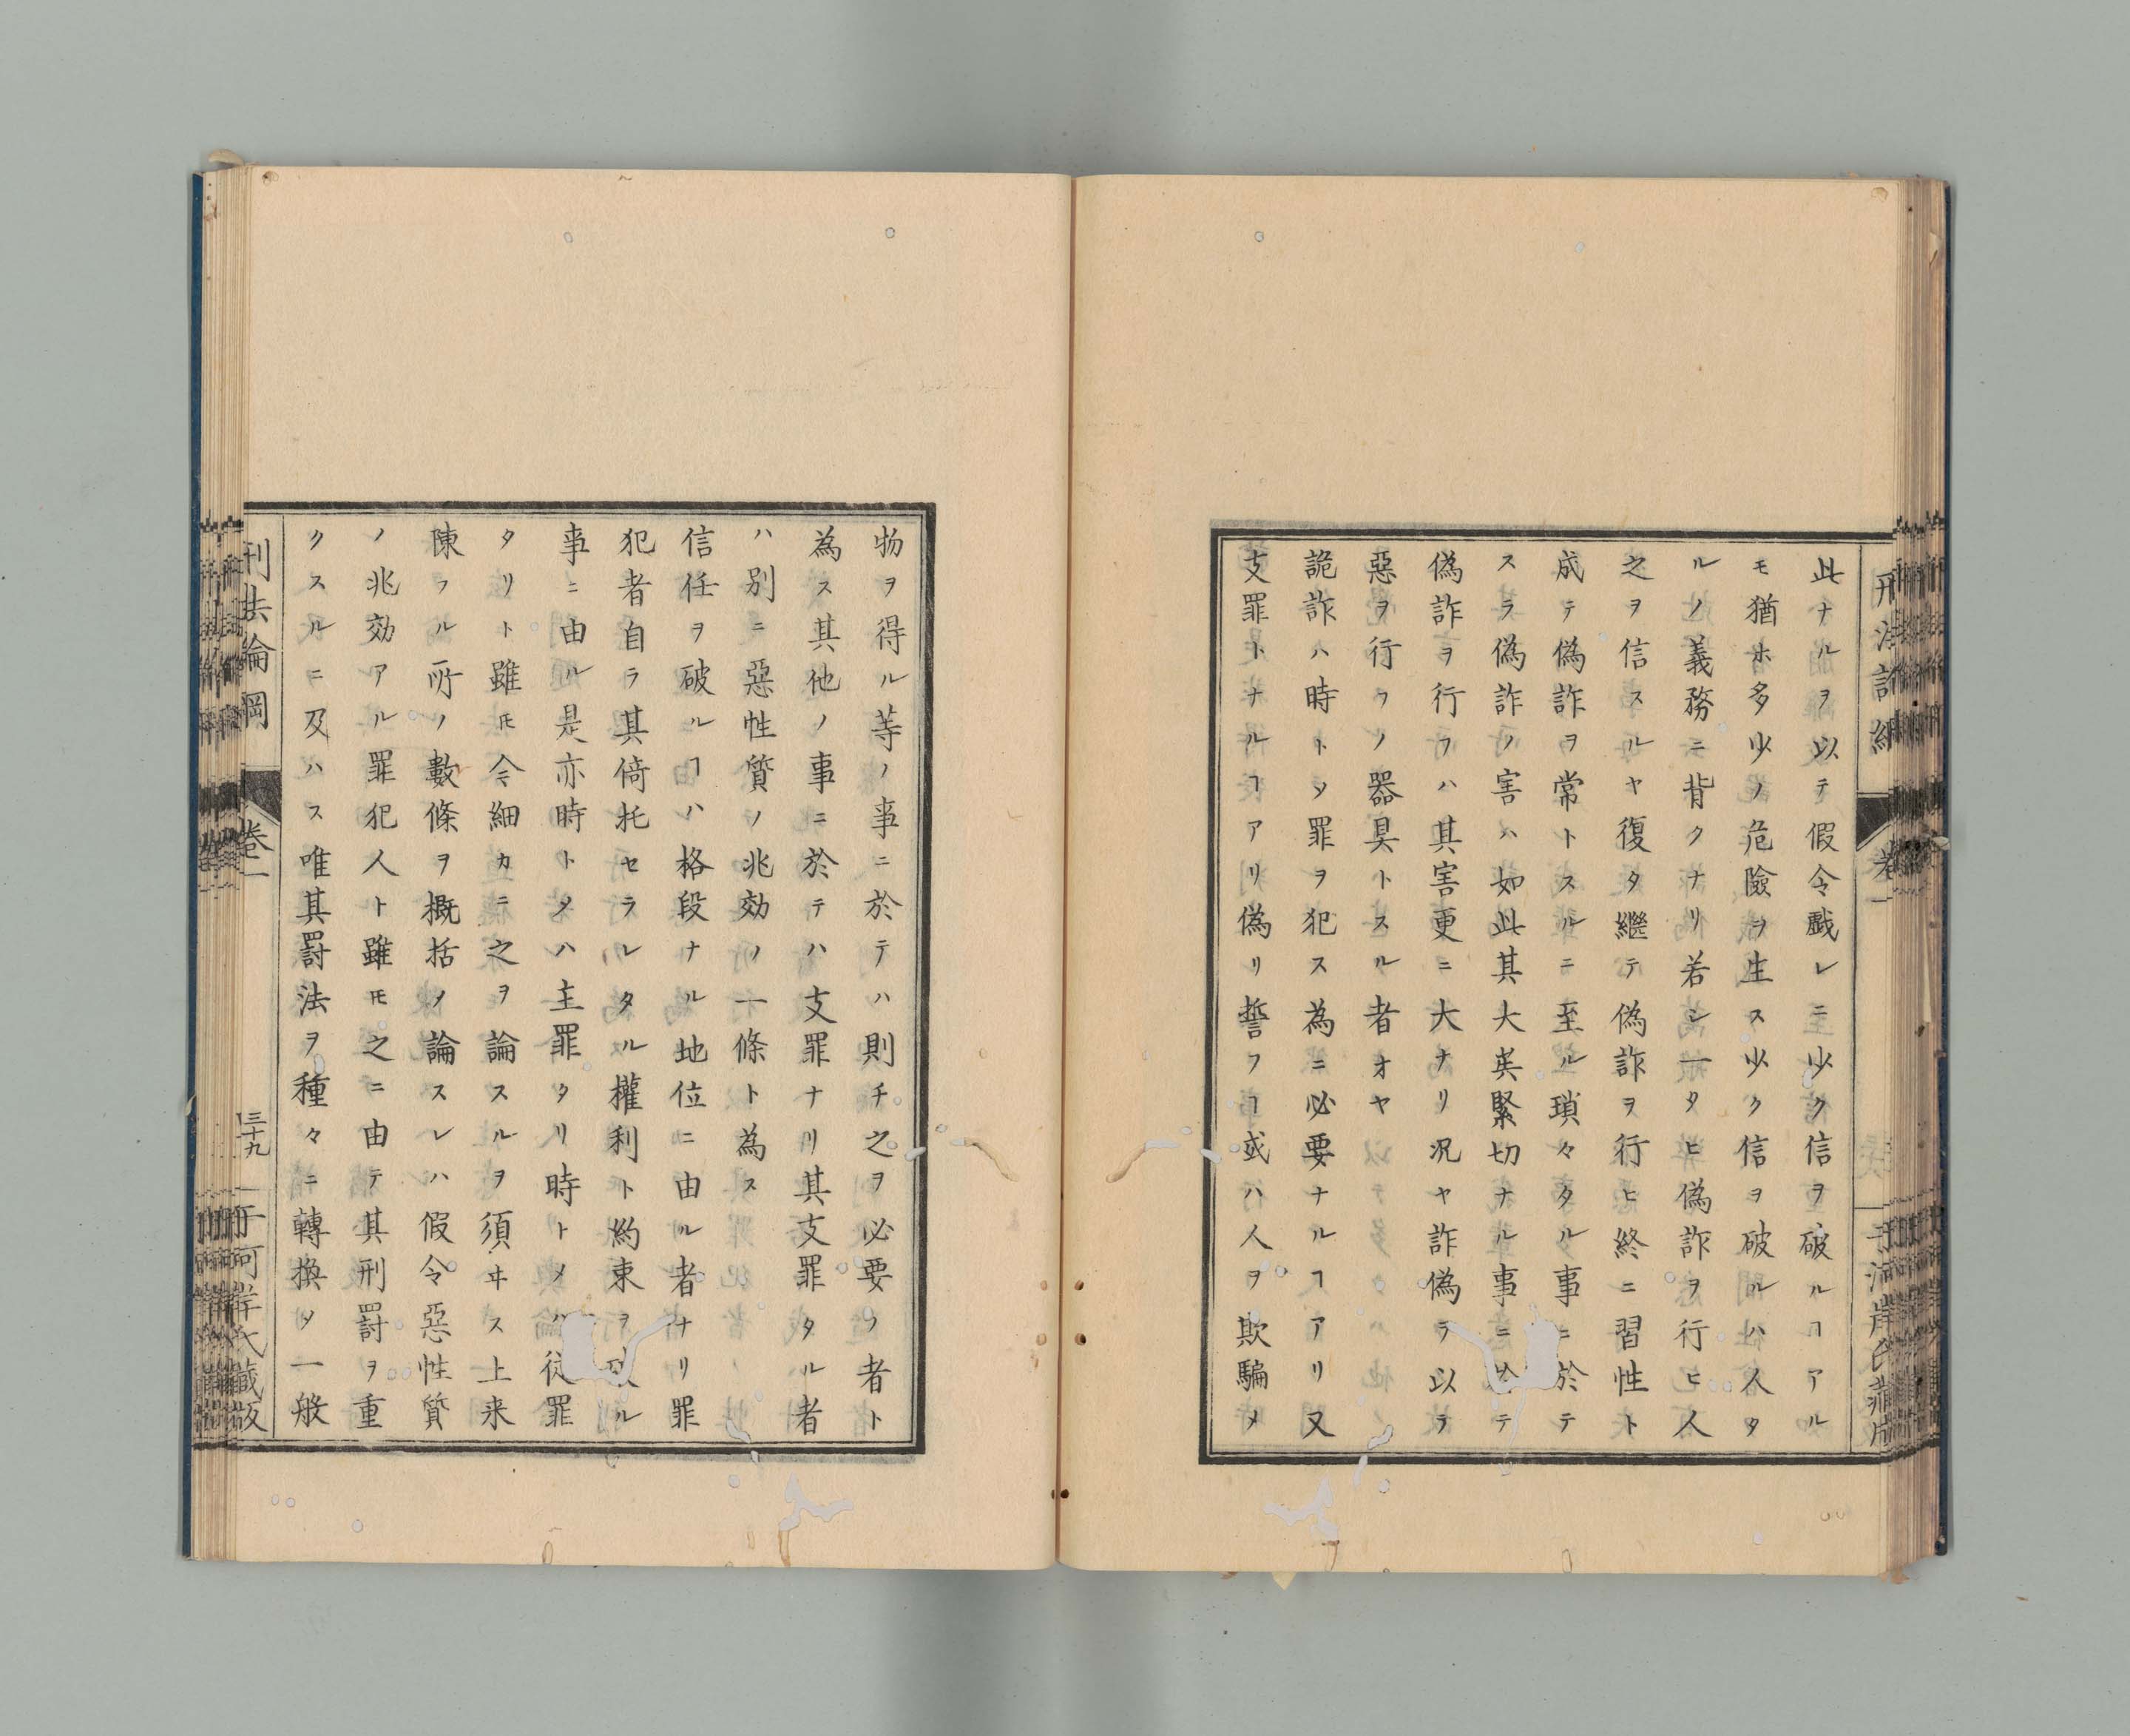 此ナルヲ以テ假令戲レニ少ク信ヲ破ルヿアル
モ猶ホ多少ノ危險ヲ生ス少ク信ヲ破ルハ人タ
ルノ義務ニ背クナリ若シ一タヒ偽詐ヲ行ヒ人
之ヲ信スルヤ復タ繼テ偽詐ヲ行ヒ終ニ習性ト
成テ偽詐ヲ常トスルニ至ル瑣々タル事ニ於テ
スラ偽詐ノ害ハ如此其大英緊切ナル事ニ於テ
偽詐ヲ行フハ其害更ニ大ナリ况ヤ詐偽ヲ以テ
惡ヲ行フノ器具トスル者オヤ
詭詐ハ時トメ罪ヲ犯ス為ニ必要ナルヿアリ又
支罪トナルヿアリ偽リ誓フヿ或ハ人ヲ欺騙メ
物ヲ得ル等ノ事ニ於テハ則チ之ヲ必要ノ者ト
為ス其他ノ事ニ於テハ支罪ナリ其支罪タル者
ハ別ニ惡性質ノ兆効ノ一條ト為ス
信任ヲ破ルヿハ格段ナル地位ニ由ル者ナリ罪
犯者自ラ其倚托セラレタル權利ト約束ヲ破ル
事ニ由ル是亦時トメハ主罪タリ時トメハ從罪
タリト雖𪜈今細カニ之ヲ論スルヲ須ヰス上来
陳フル所ノ數條ヲ概括ノ論スレハ假令惡性質
ノ兆効アル罪犯人ト雖𪜈之ニ由テ其刑罸ヲ重
クスルニ及ハス唯其罸法ヲ種々ニ轉換メ一般
刑法論綱
卷一
三十九
于河岸氏藏版